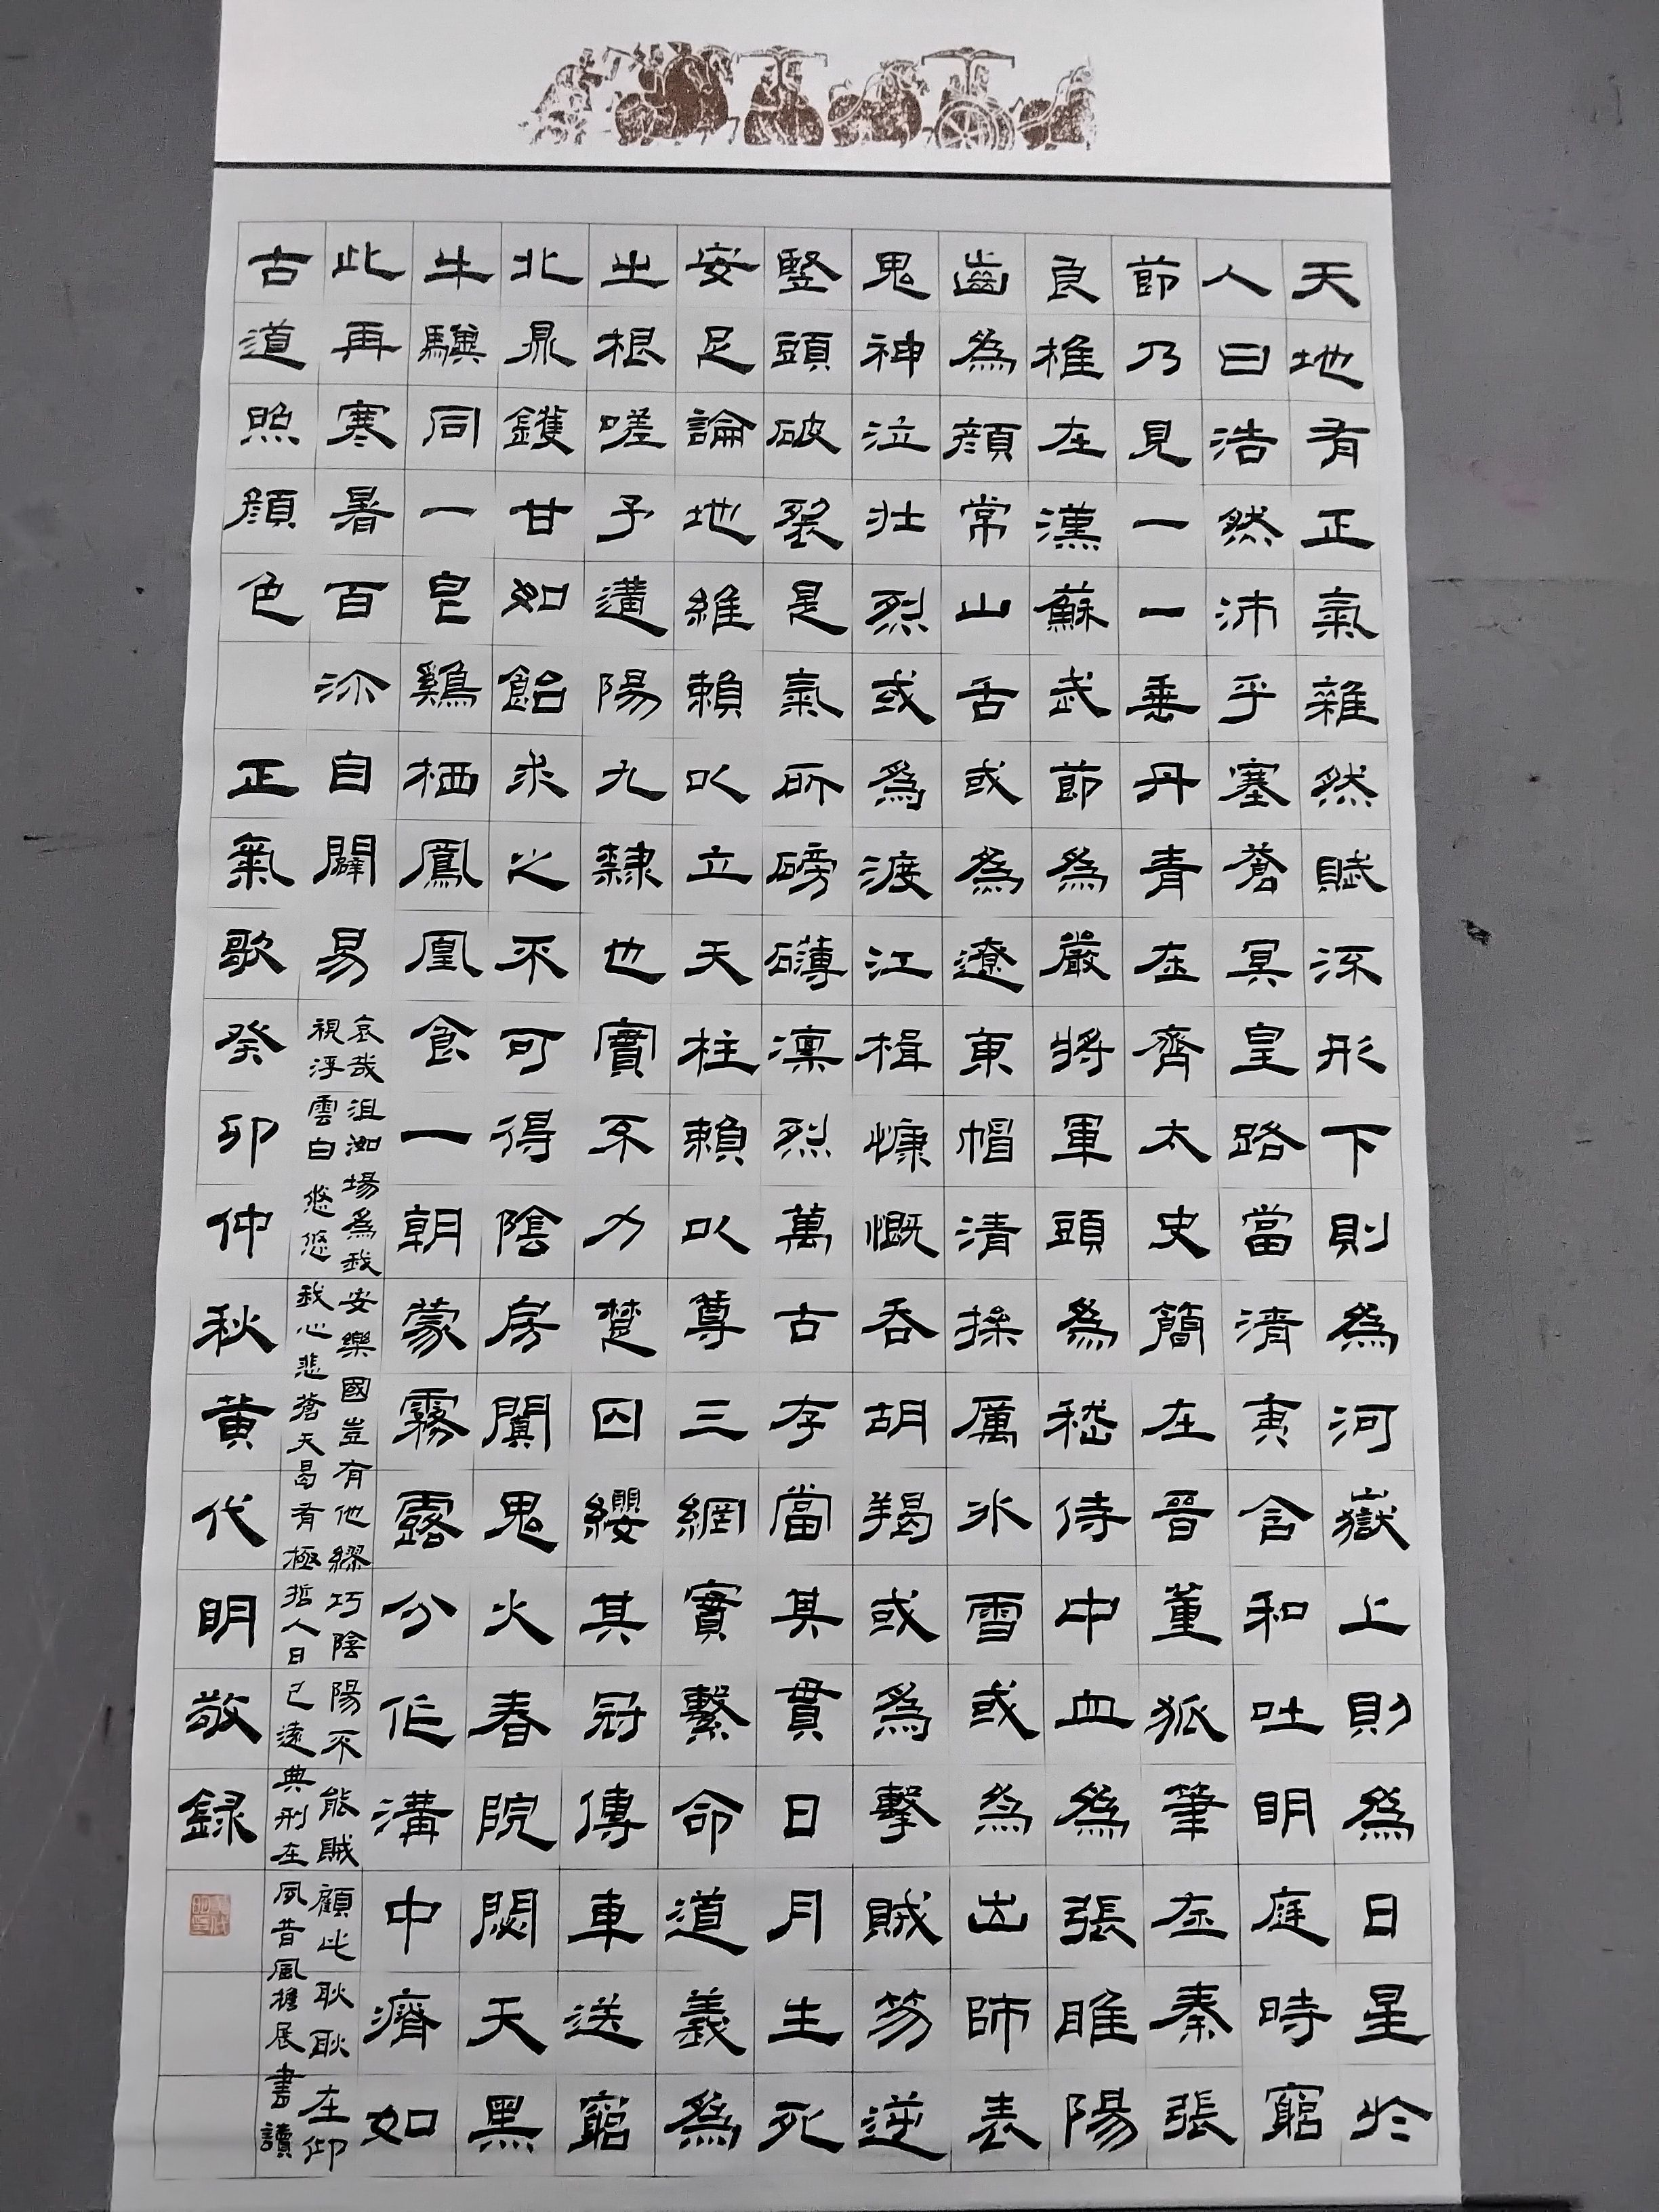 天地有正氣雜然賦流形下則為河嶽上則為日星於
人曰浩然沛乎塞蒼冥皇路當清夷含和吐明庭時窮
節乃見一一垂丹青在齊太史簡在晉董狐筆在秦張
良椎在漢蘇武節為嚴將軍頭為嵇侍中血為張睢陽
齒為顏常山舌或為遼東帽清操厲冰雪或為出師表
鬼神泣壯烈或為渡江楫慷慨吞胡羯或為擊賊笏逆
豎頭破裂是氣所磅礴凜烈萬古存當其貫日月生死
安足論地維賴以立天柱賴以尊三綱實繫命道義為
之根嗟予遘陽九隸也實不力楚囚纓其冠傳車送窮
北鼎鑊甘如飴求之不可得陰房闃鬼火春院閟天黑
牛驥同一皂鷄栖鳳凰食一朝蒙霧露分作溝中瘠如
此再寒暑百沴自闢易
哀哉沮洳場為我安樂國豈有他繆巧陰陽不能賊顧此耿耿在仰
視浮雲白悠悠我心悲蒼天曷有極哲人日已遠典刑在夙昔風檐展書讀
古道照顏色 正氣歌癸卯仲秋黃代明敬録